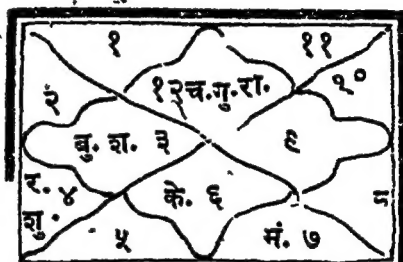 १ ११
१२च.गु.रा. १०
२
बु. श. ३ ९
र. ४ के. ६ ८
शु.
५ मं. ७